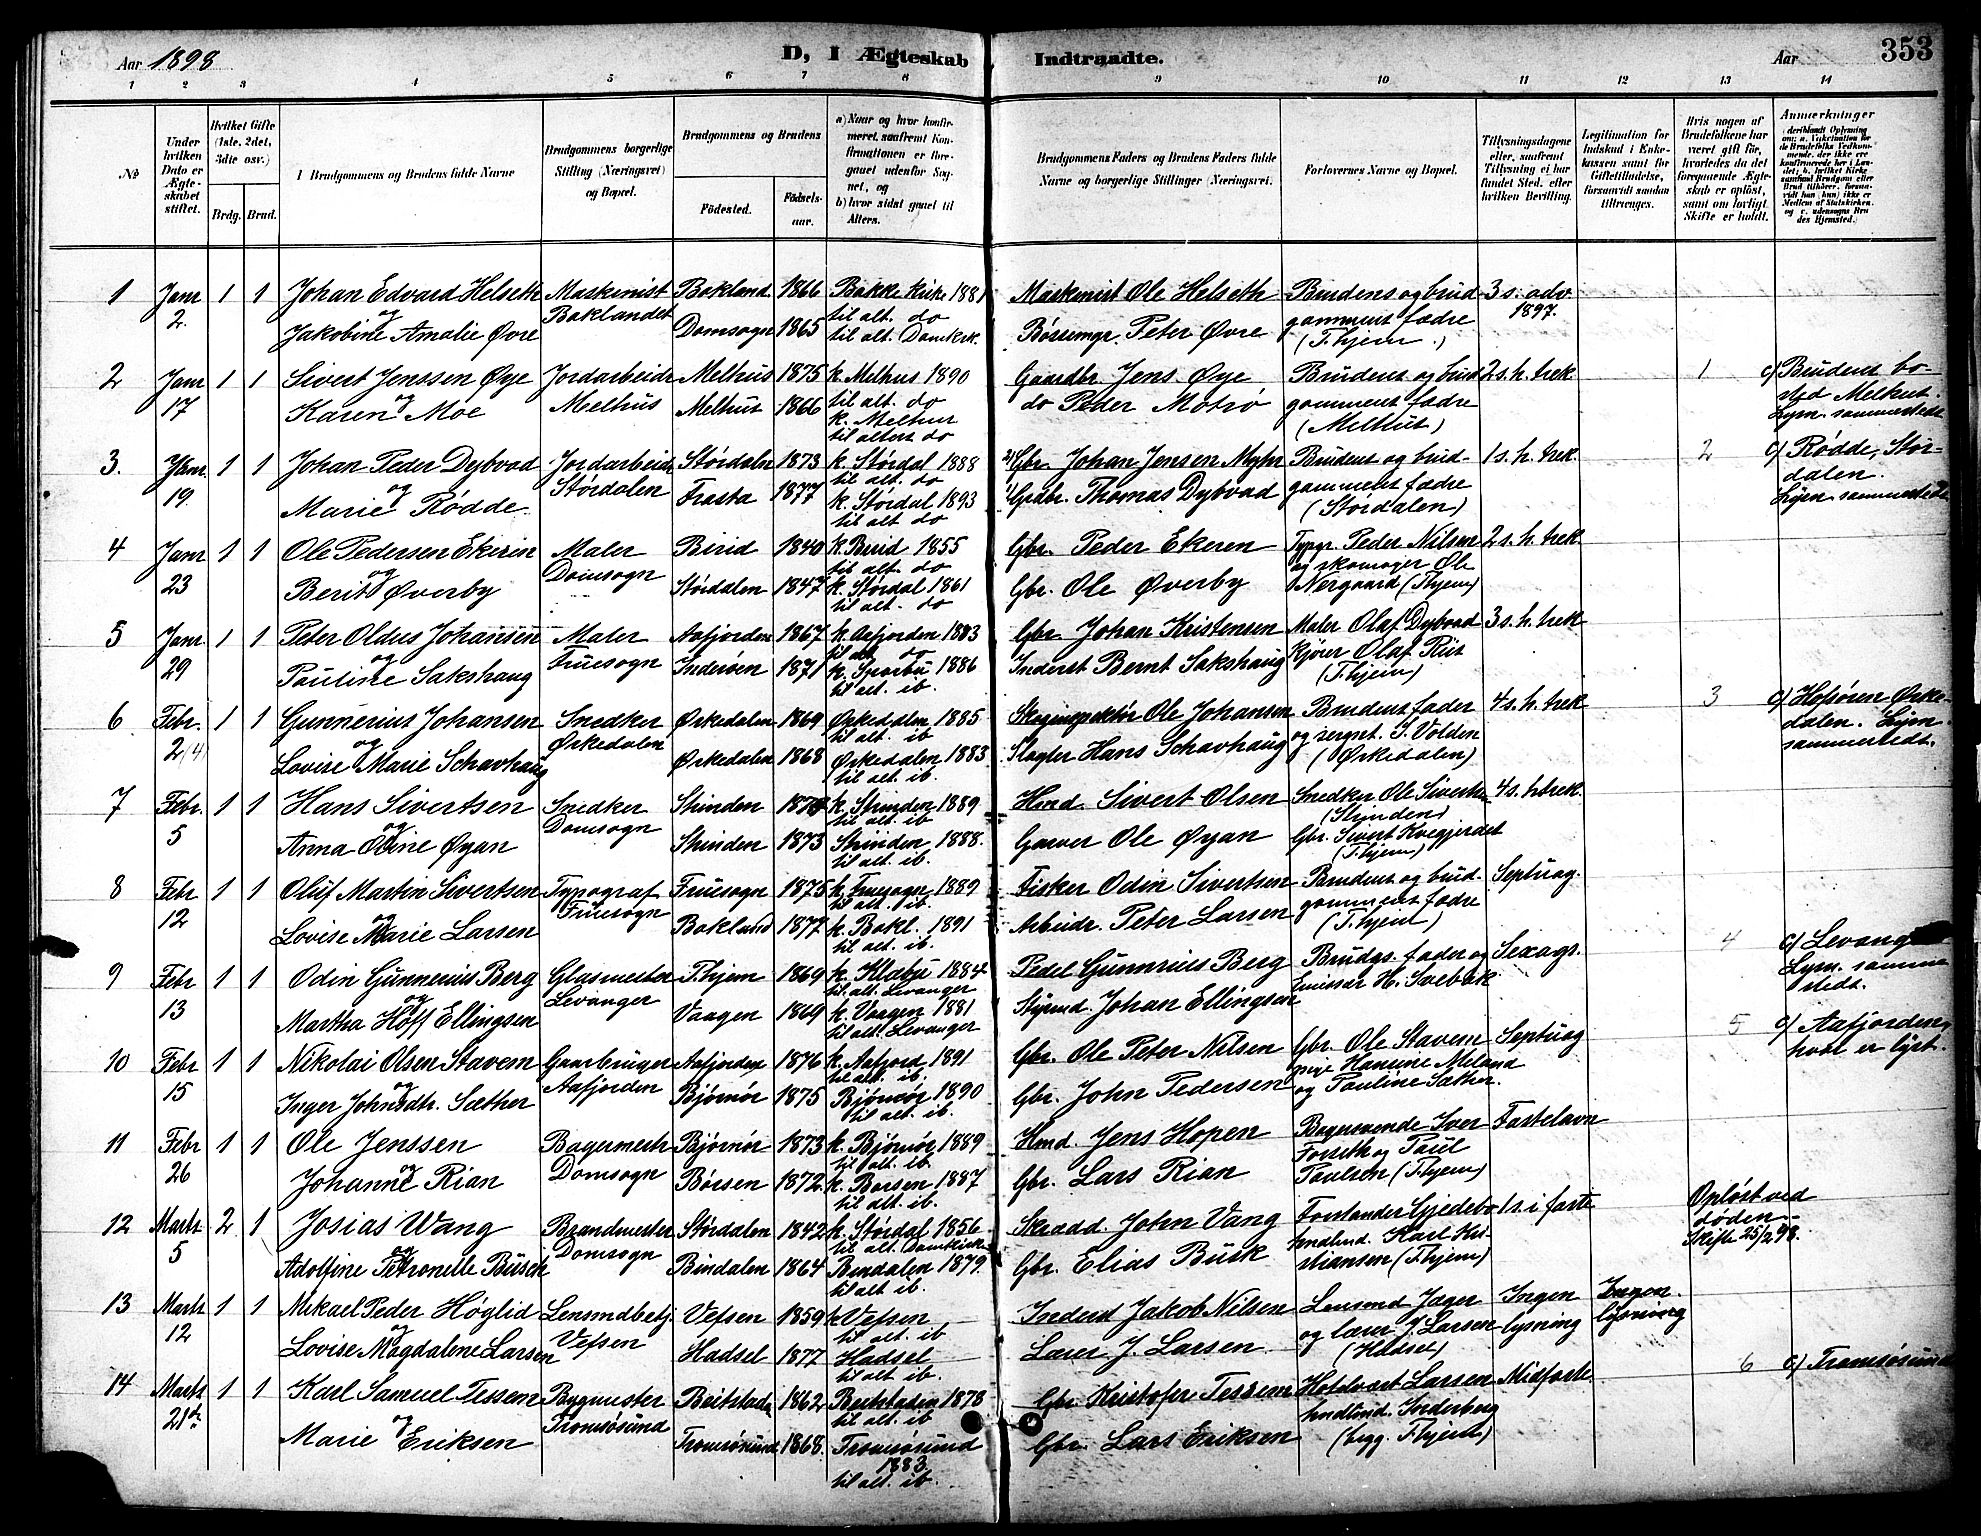 Aar 1898
D, I Ægteskab Indtraadte.
Aar 353
1 2 3 4 5 6 7 8 9 10 11 12 13 14
No
Under hvilken Dato er Ægteskabet stiftet.
Hvilket Gifte (1ste, 2det, 3die osv.)
Brdg. Brud.
Brudgommens og Brudens fulde Navne
Brudgommens borgerlige Stilling (Næringsvei) og Bopæl.
Brudgommens og Brudens
Fødested. Fødselsaar.
a) Naar og hvor konfirmeret, saafremt Konfirmationen er foregaaet udenfor Sognet, og
b) hvor sidst gaaet til Alters.
Brudgommens Faders og Brudens Faders fulde Navne og borgerlige Stillinger (Næringsvei.
Forlovernes Navne og Bopæl.
Tillysningsdagene eller, saafremt Tillysning ei har fundet Sted, efter hvilken Bevilling.
Legitimation for Indskud i Enkekassen samt for Giftetilladelse, forsaavidt saadan tiltrænges.
Hvis nogen af Brudefolkene har været gift før, hvorledes da det foregaaende Ægteskab er opløst, samt om lovligt Skifte er holdt.
Anmerkninger
1 Janr 2. 1 1 Johan Edvard Helseth
og
Jakobine Amalie Øvre
Maskinist
Baklandet
Bakland 1866
Domsogn 1865
Bakke Kirke 1881
til alt. do
til alt. Domkirk.
Maskinist Ole Helseth
Børsemgr. Peter Øvre
Brudens og brud
gommens fædre
(T.hjem.)
3 s. adv.
1897.
2 Janr 17 1 1 Sivert Jenssen Øye
og
Karen Moe
Jordarbeidr
Melhus
Melhus 1875
Melhus 1866
k. Melhus 1890
til alt. do
k. Melhus
til alters do
Gaardbr Jens Øye
do Peder
Brudens og brud
gommens fædre
(Melhus)
2 s. h. trek.
1 c) Brudens bo-
sted Melhus.
Lysn. sammesteds
3. Janr 19 1 1 Johan Peder Dybvad
og
Marie Rødde
Jordarbeidr
Størdalen
Størdalen 1873
Frosta 1877
k. Størdal 1888
til alt. do
k. Størdal 1893
til alt do
2) Gbr. Johan Jensen Myhr
1) Grdbr. Thomas Dybvad
Brudens og brud-
gommens fædre
(Størdalen)
1 s. h. trek.
2 c) Rødde, Stør-
dalen.
Lysn. sammesteds
4 Janr 23 1 1 Ole Pedersen Ekerin
og
Berit Øverby
Maler
Domsogn
Birid 1840
Størdalen 1847
k. Birid 1855
til alt. do
k. Størdal 1861
til alt. do
Gbr. Peder Ekeren
Gbr. Ole Øverby
Typgr. Peder Nilsen
og skomager Ole
Nergaard (T.hjem)
2 s. h. trek
5 Janr 29 1 1 Peter Oldus Johansen
og
Pauline Sakshaug
Maler
Fruesogn
Aafjorden 1867
Inderøen 1871
k. Aafjorden 1883
til alt do
k. Sparbu 1886
til alt. ib.
Gbr Johan Kristensen
Inderst Bernt Sakshaug
Maler Olaf Dybvad
Kjører Olaf
(T.hjem)
3 s. h. trek
6 Febr. 2 (4) 1 1 Gunnerius Johansen
og
Lovise Marie Schavhaug
Snedker
Ørkedalen
Ørkedalen 1869
Ørkedalen 1868
Ørkedalen 1885
til alt. ib
Ørkedalen 1883
til alt. ib.
Skoginspektør Ole Johansen
Slagter Hans Schavhaug
Brudens fader
og sergnt. I. Volden
(Ørkedalen)
4 s. h. trek
3 c) Hofsøren Ørke-
dalen. Lysn
sammesteds.
7 Febr. 5 1 1 Hans Sivertsen
og
Anna Odine Øyan
Snedker
Domsogn
Strinden
Strinden 1873
k. Strinden 1889
til alt. ib
Strinden 1888.
til alt. ib.
Hmd. Sivert Olsen
Garver Ole Øyan
Snedker Ole Sivertsen
(Strinden)
Gbr. Sivert Kvegjerdet
(T.hjem)
4 s. h. trek.
8 Febr 12 1 1 Oluf Martin Sivertsen
og
Lovise Marie Larsen
Typograf
Fruesogn
Fruesogn 1875
Bakland 1877
k. Fruesogn 1889
til alt. ib.
k. Bakl. 1891
til alt. ib.
Fisker Odin Sivertsen
Arbeidr. Peter Larsen
Brudens og brud-
gommens fædre
(T.hjem)
Septuag.
9 Febr 13 1 1 Odin Gunnerius Berg
og
Martha Hoff Ellingsen
Glasmester
Levanger
T.hjem 1869
Vaagen 1869
k. Klæbu 1884
til alt. Levanger
k. Vaagen 1881
til alt. Levanger
Pedel Gunnerius Berg
Styrmd. Johan Ellingsen
Brudgs. fader og
Emissær H. Svebak
Sexags.
4 c) Levanger
Lysn. samme
steds.
10 Febr 15 1 1 Nikolai Olsen Stavem
og
Inger Johnsdtr. Sæther
Gaarbruger
Aafjorden
Aafjorden 1876
Bjørnør 1875
k. Aafjord 1891
til alt. ib.
Bjørnør 1890
til alt. ib.
Gbr. Ole Peter Nilsen
Gbr. John Pedersen
Gbr. Ole Stavem
pige Hansine Meland
og Pauline Sæther.
Septuag
5 c) Aafjorden,
hvor er lyst.
11 Febr 26 1 1 Ole Jenssen
og
Johanne Rian
Bagermestr
Domsogn
Bjørnør 1873
Børsen 1872
k. Bjørnør 1889
til alt. ib.
k. Børsen 1887
til alt. ib.
Hmd Jens Hopen
Gbr. Lars Rian
Bagersvende Iver
Forseth og Paul
Paulsen (T.hjem)
Fastelavn
12 Marts 5 2 1 Josias Wang
og
Adolfine Petronelle Büsch
Brandmester
Domsogn
Størdalen 1842
Bindalen 1864
k. Størdal 1856
til alt. Domkirk
Bindalen 1879
til alt. ib.
Skrædd. John Vang
Gbr. Elias Busk
Forstander Gjedebo
handlsmd. Karl Kri-
stiansen (T.hjem)
1 s. i faste
Opløst ved
døden
Skifte 25/2 98.
13 Marts 12 1 1 Mikael Peder Høglid
og
Lovise Magdalene Larsen
Lensmdbetj.
Vefsen
Vefsen 1859
Hadsel 1877
k Vefsen
til alt. ib
Hadsel
til alt. ib.
Indersd Jakob Nilsen
Lærer J. Larsen
Lensmd Jæger
og lærer J. Larsen
(Hadsel)
Ingen
lysning
Ingen
lysning
14 Marts 21de 1 1 Karl Samuel Tessem
og
Marie Eriksen
Bygmester
Tromsøsund
Beitstaden 1862
Tromsøsund 1868.
Beitstaden 1878
til alt. ib
Tromsøsund
1883.
til alt. ib.
Gbr Kristofer Tessem
Gbr. Lars Eriksen
Hotelvært Larsen
handlsmd. Inderberg
(begg. T.hjem)
Midfaste
6 c) Tromsøsund